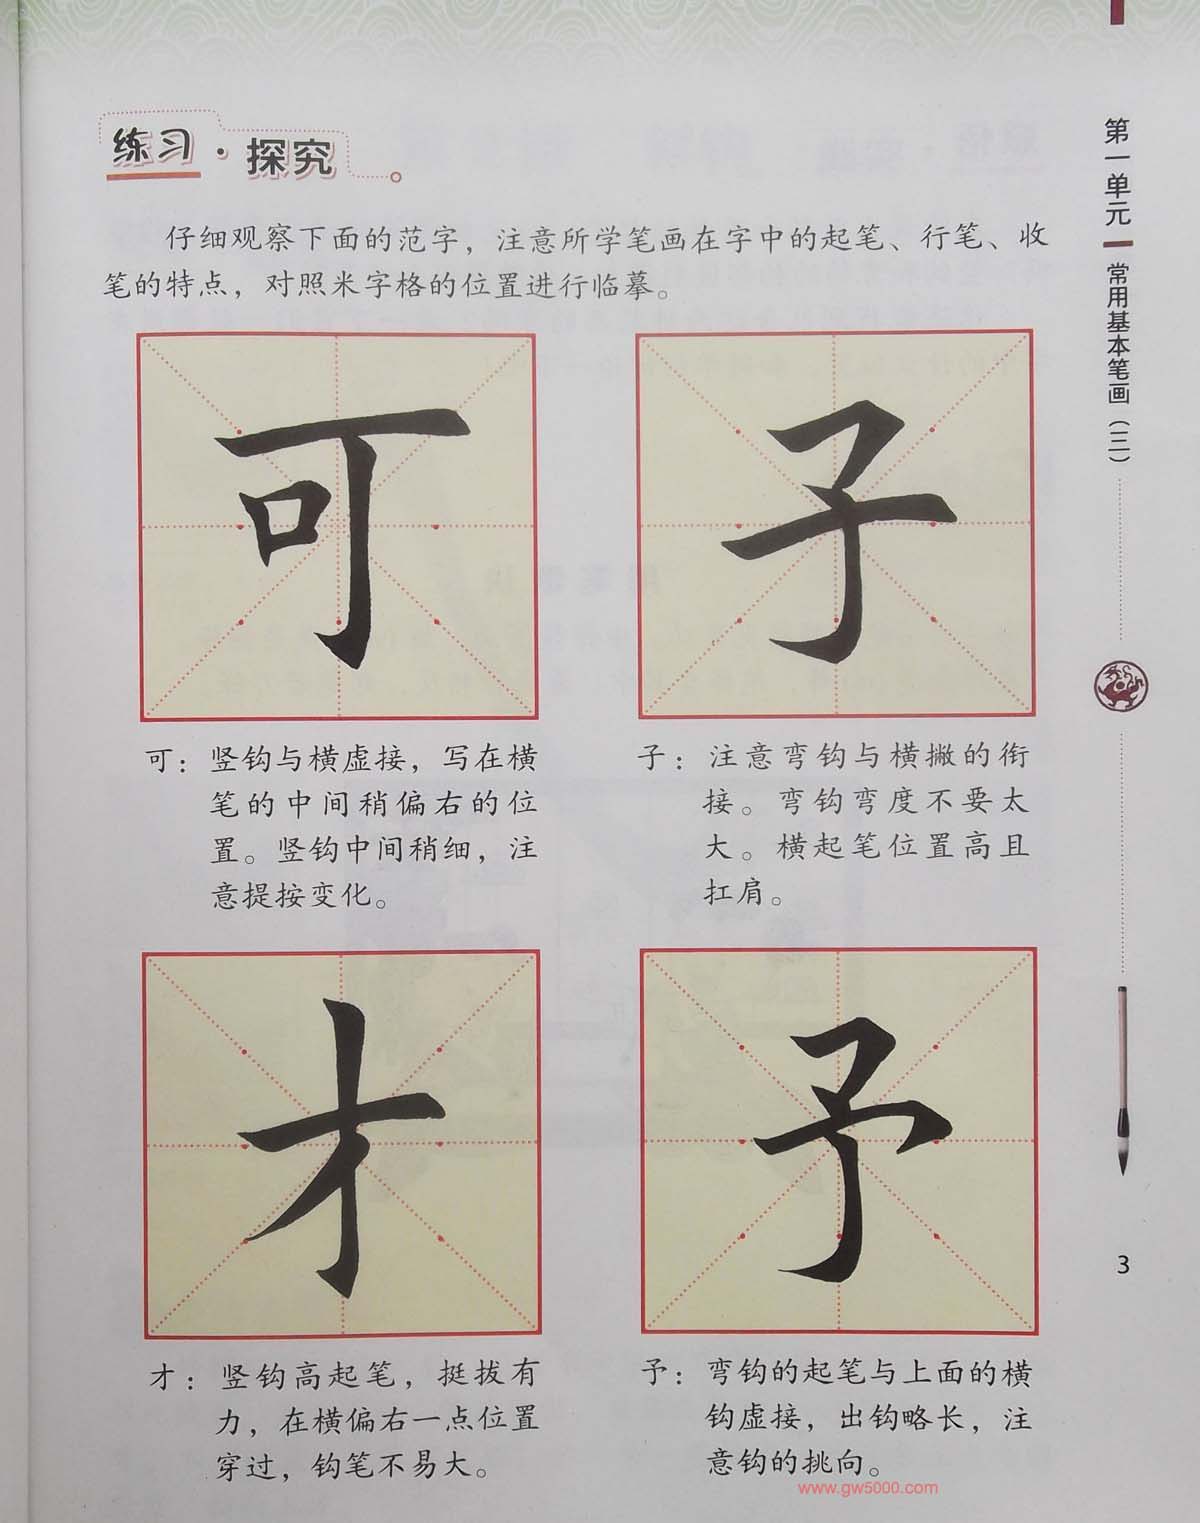 练习·探究
仔细观察下面的范字，注意所学笔画在字中的起笔、行笔、收
笔的特点，对照米字格的位置进行临摹。
可
子
可：竖钩与横虚接，写在横
笔的中间稍偏右的位
置。竖钩中间稍细，注
意提按变化。
子：注意弯钩与横撇的衔
接。弯钩弯度不要太
大。横起笔位置高且
扛肩。
才
予
才：竖钩高起笔，挺拔有
力，在横偏右一点位置
穿过，钩笔不易大。
予：弯钩的起笔与上面的横
钩虚接，出钩略长，注
意钩的挑向。
第一单元
常用基本笔画（三）
3
www.gw5000.com